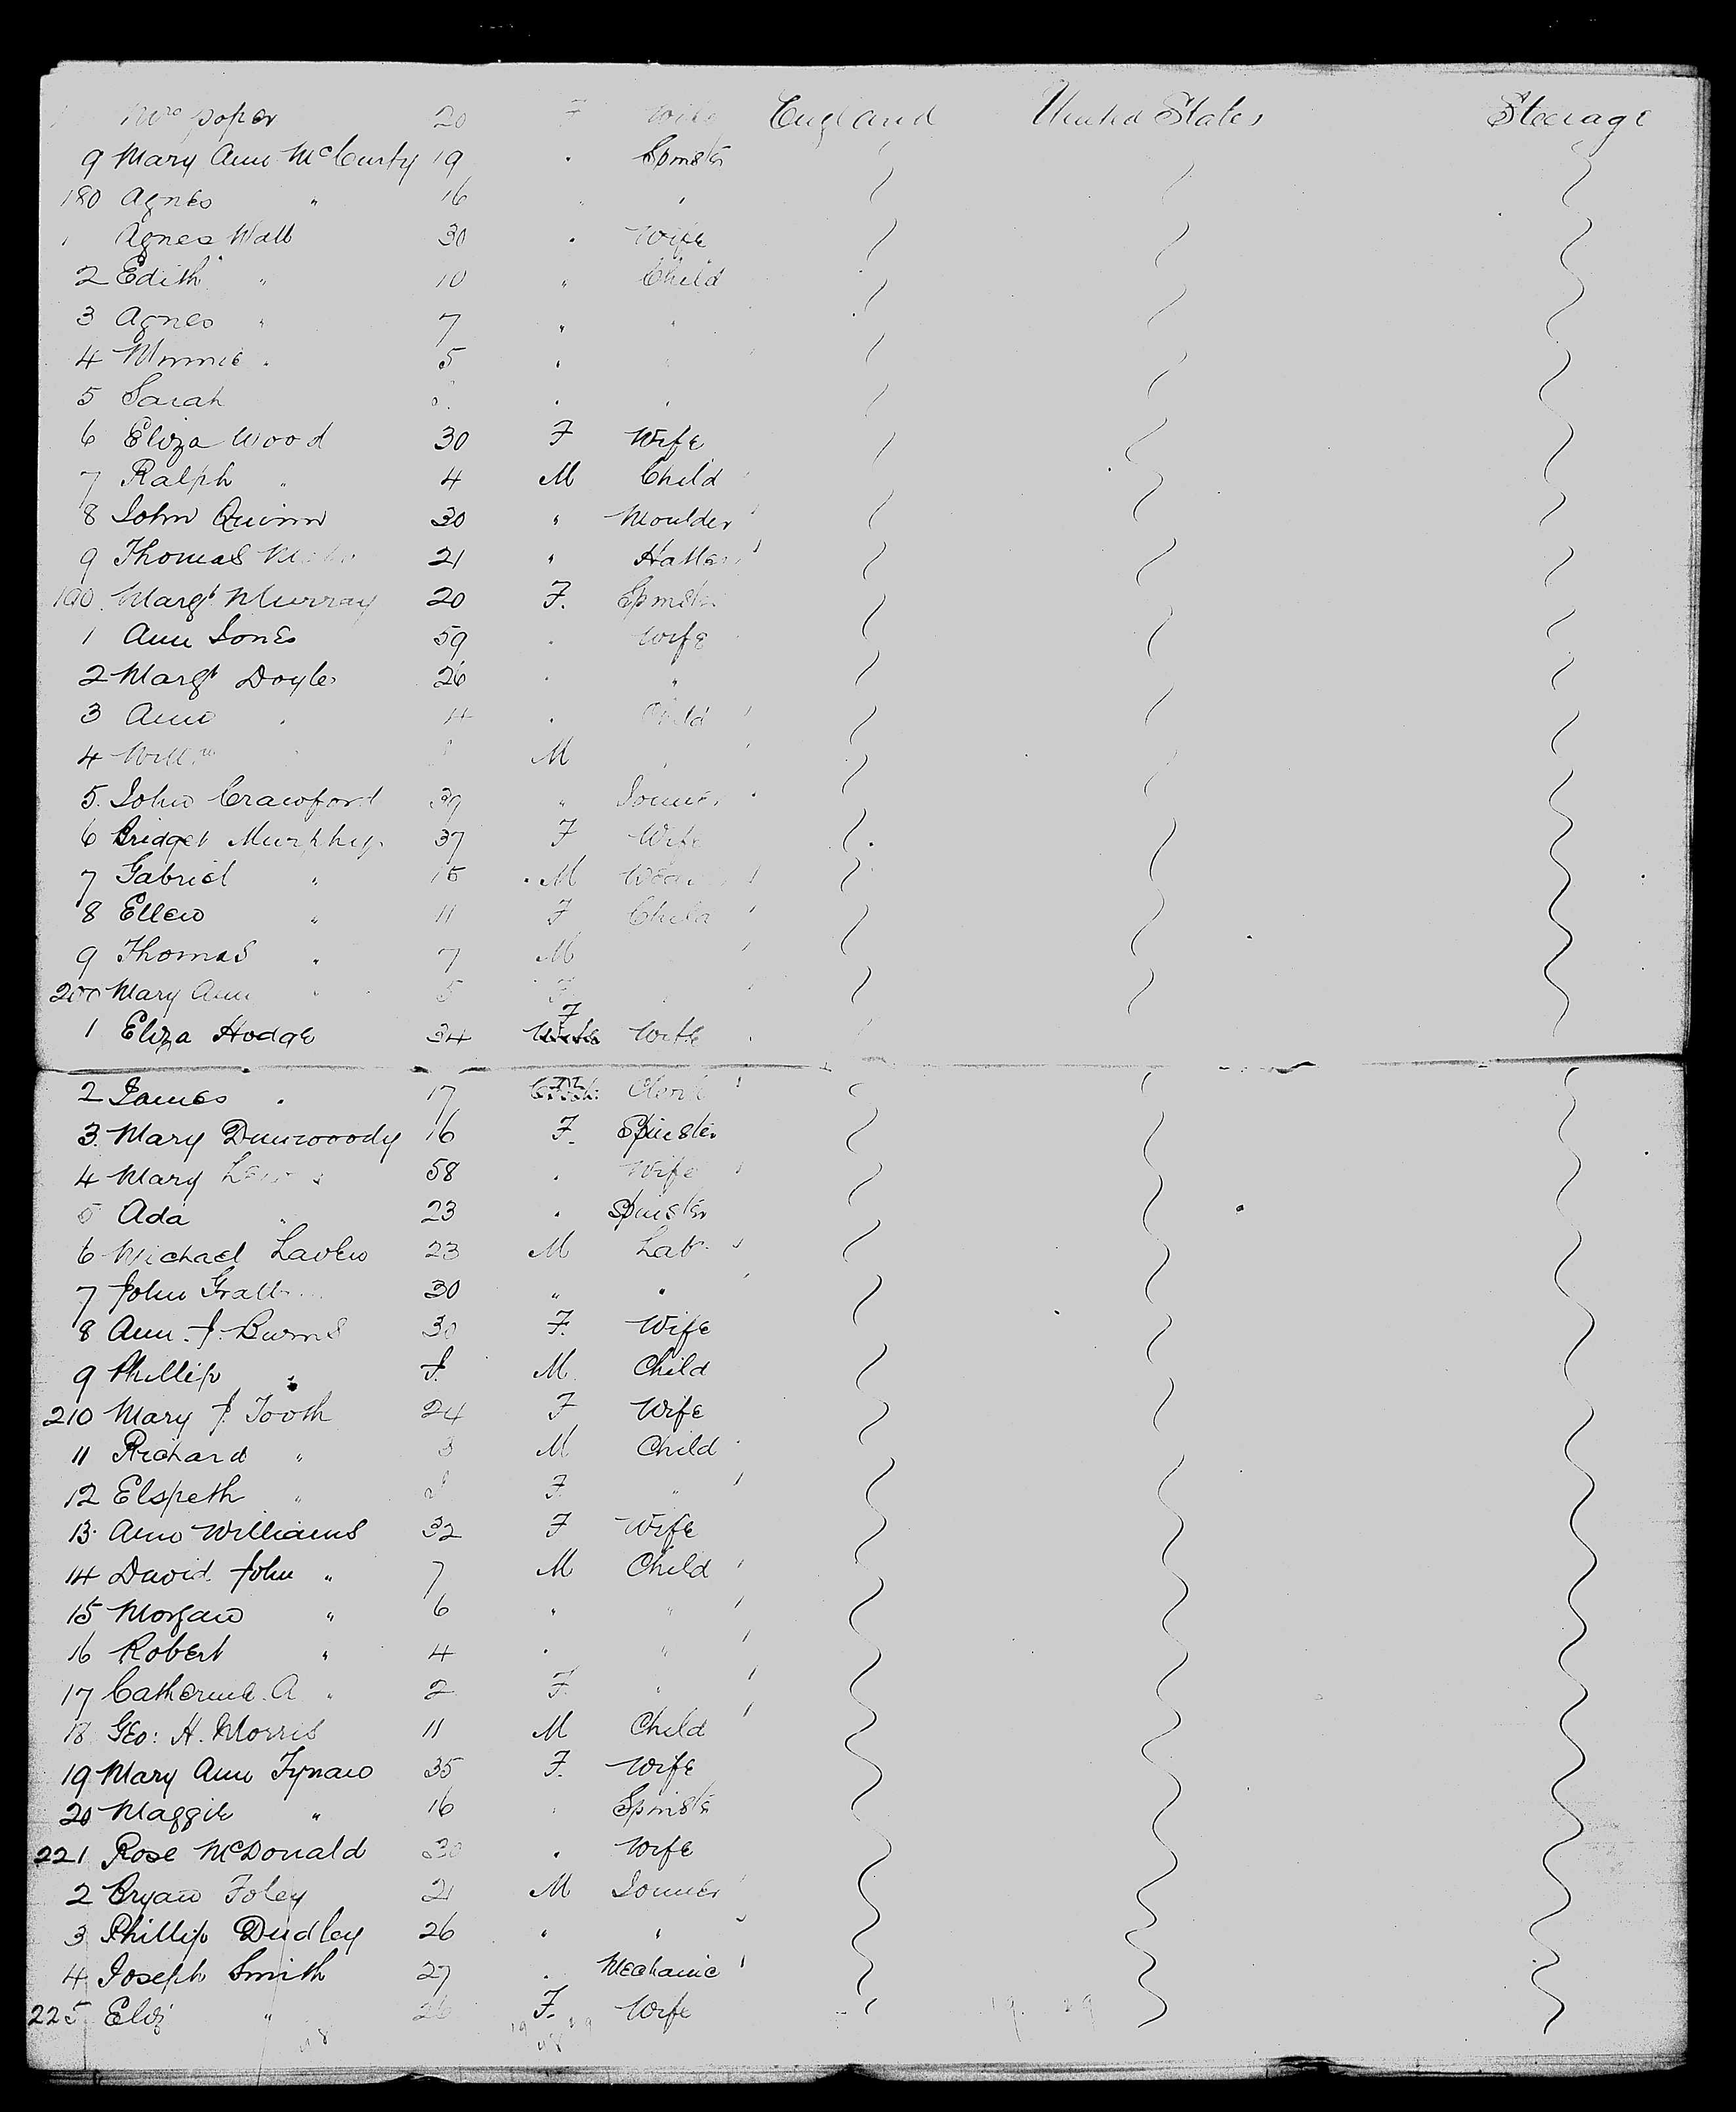 Mrs Soper 20 F Wife England United States Steerage
9 Mary Ann McCurty 19 " Spinster
180 Agnes " 16 " "
1 Agnes Wall 30 " Wife
2 Edith " 10 " Child
3 Agnes " 7 " "
4 Minnie " 5 "
5 Sarah " "
6 Eliza Wood 30 F Wife
7 Ralph " 4 M Child
8 John Quinn 30 " Moulder
9 Thomas 21 " Hatter
190 Margt Murray 20 F. Spinster
1 Ann Jones 59 " Wife
2 Margt Doyle 26 " "
3 Ann " 4 " Child
4 Willm M
5. John Crawford 39 " Joiner
6 Bridget Murphy 37 F Wife
7 Gabriel " 15 M
8 Ellen " 11 F Child
9 Thomas " 7 M
200 Mary Ann " 5 F
1 Eliza Hodge 34 F Wife
2 James " 17 M Clerk
3. Mary Dunwoody 16 F. Spinster
4 Mary 58 " Wife
5 Ada " 23 " Spinster
6 Michael Laven 23 M Lab.
7 John 30 " "
8 Ann J. Burns 30 F. Wife
9 Phillip " M Child
210 Mary J. Tooth 24 F Wife
11 Richard " 3 M Child
12 Elspeth " F "
13. Ann Williams 32 F Wife
14 David John " 7 M Child
15 Morgan " 6 " "
16 Robert " 4 " "
17 Catherine A " 2 F. "
18 Geo: H. Morris 11 M Child
19 Mary Ann Tynan 35 F. Wife
20 Maggie " 16 " Spinster
221 Rose McDonald 30 " Wife
2 Bryan Foley 21 M Joiner
3 Phillip Dudley 26 " "
4 Joseph Smith 27 " Mechanic
225 Eliz " 26 F. Wife